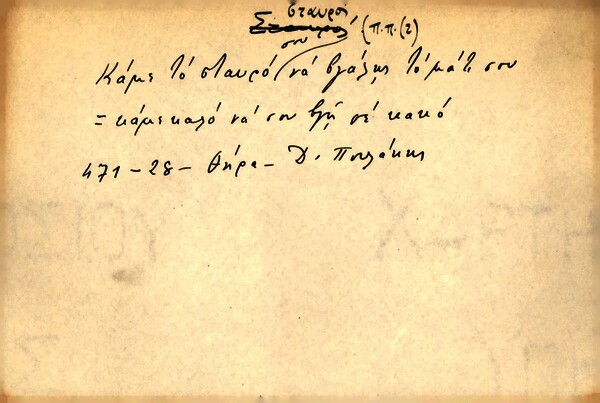 Σ. σταυρός (π.π.(2)
Κάμε τό σταυρό σου νά βγάλῃς τό μάτι σου
= κάμε καλό νά σου βγῇ σέ κακό
471 - 28 - Θήρα - Δ. Πουλάκης